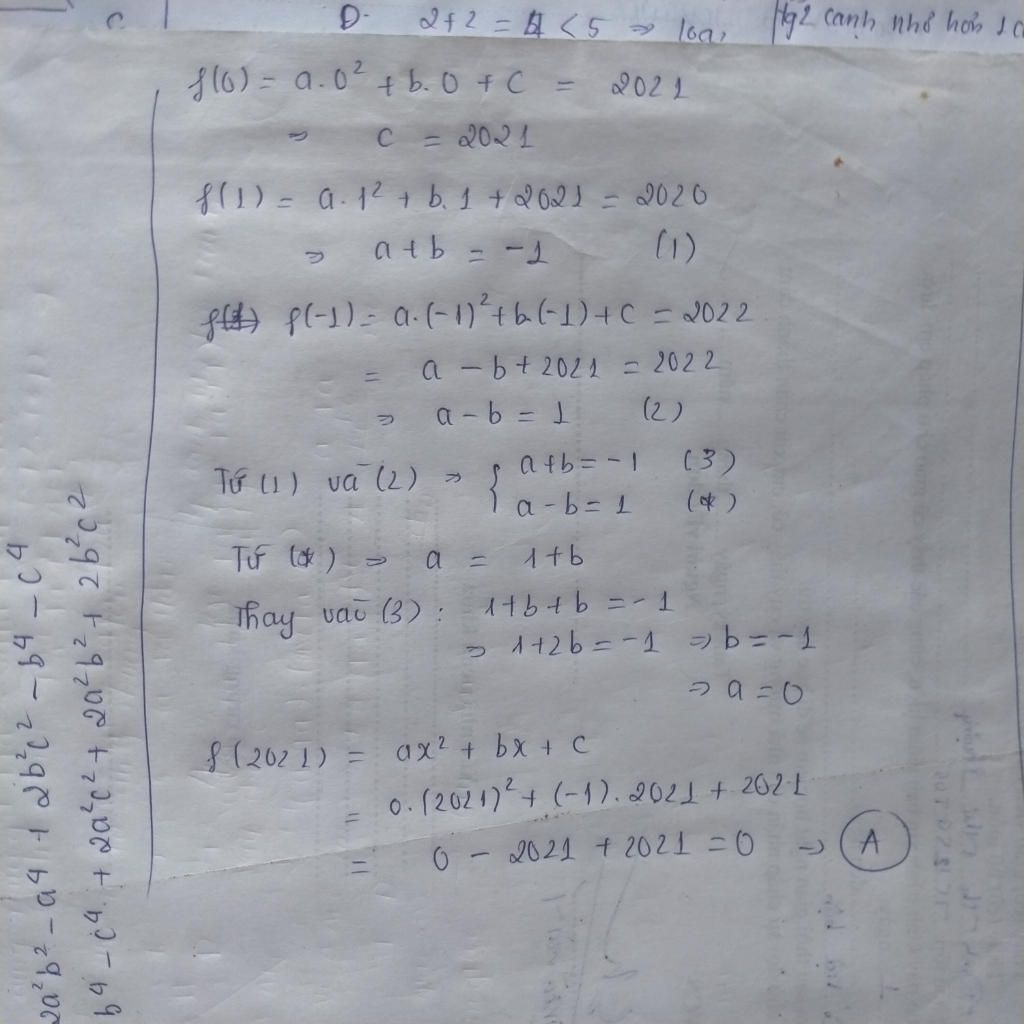 C.
D. 2+2 = 4 < 5 ⇒ loại
tg 2 cạnh nhỏ hơn 1 c
f(0) = a.0² + b.0 + c = 2021
⇒ c = 2021
f(1) = a.1² + b.1 + 2021 = 2020
⇒ a+b = -1 (1)
f(-1) = a.(-1)² + b.(-1) + c = 2022
= a - b + 2021 = 2022
⇒ a - b = 1 (2)
Từ (1) và (2) ⇒ { a+b = -1 (3)
a-b = 1 (*)
Từ (*) ⇒ a = 1+b
Thay vào (3): 1+b+b = -1
⇒ 1+2b = -1 ⇒ b = -1
⇒ a = 0
f(2021) = ax² + bx + c
= 0.(2021)² + (-1).2021 + 2021
= 0 - 2021 + 2021 = 0 → A
2a²b² - a⁴ + 2b²c² - b⁴ - c⁴
b⁴ - c⁴ + 2a²c² + 2a²b² + 2b²c²